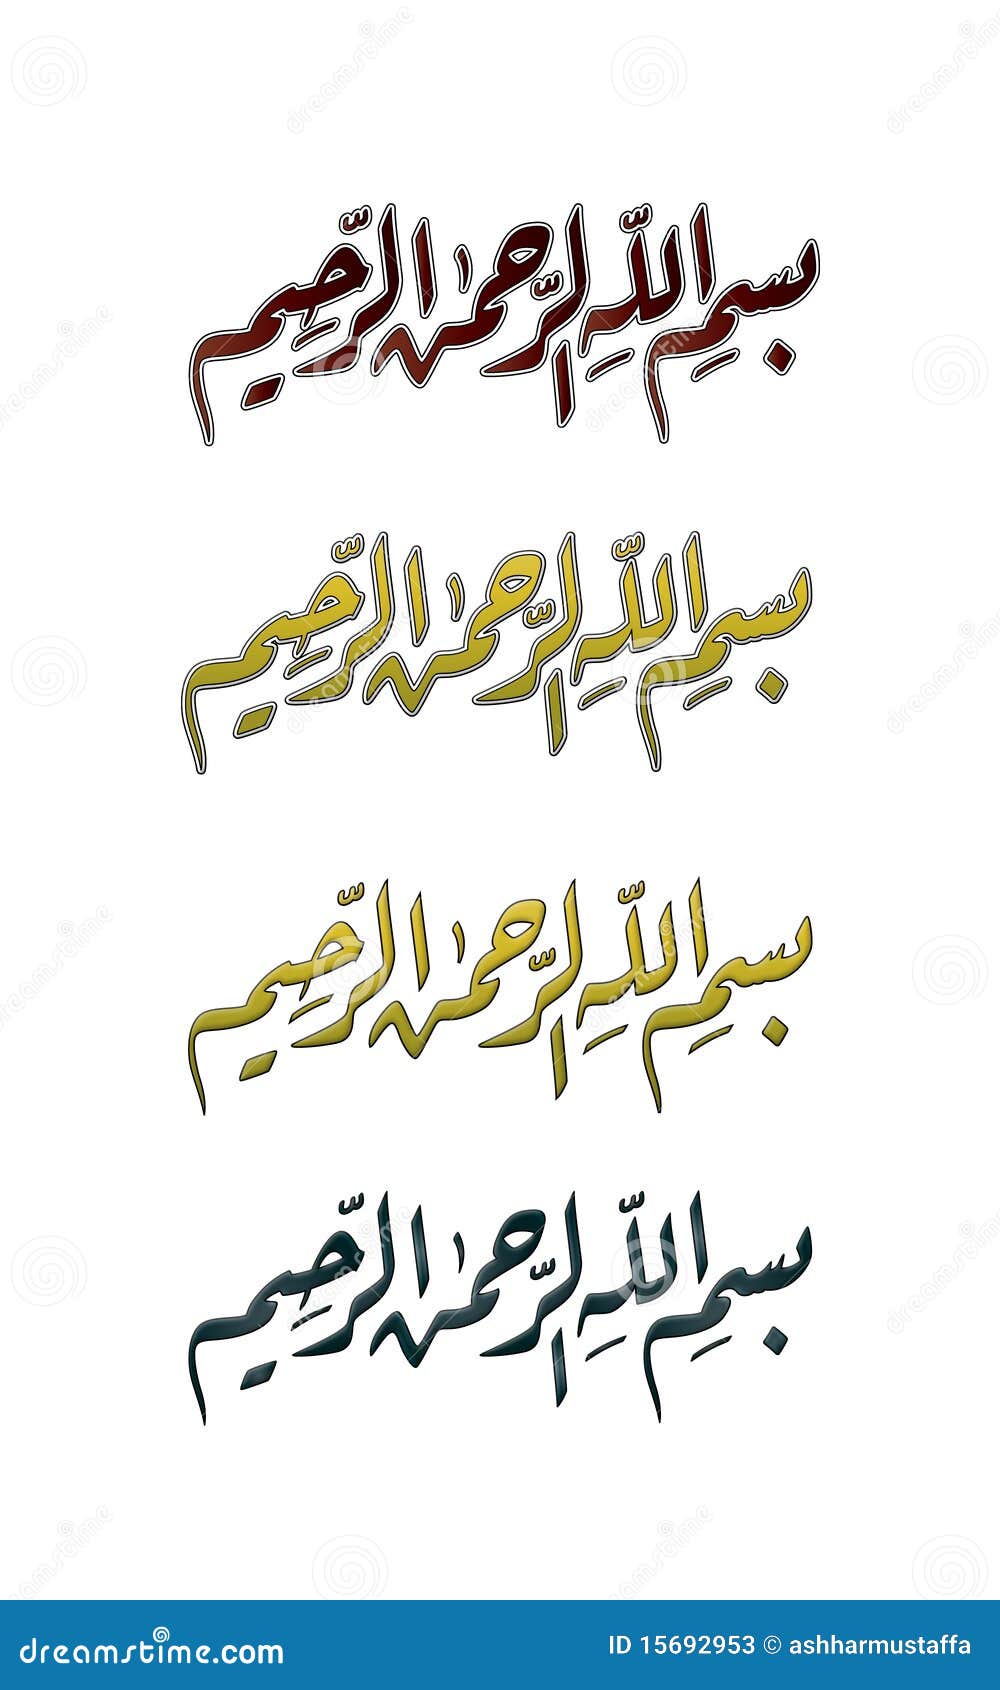 بسم الله الرحمن الرحيم
بسم الله الرحمن الرحيم
بسم الله الرحمن الرحيم
بسم الله الرحمن الرحيم
dreamstime.com
ID 15692953 © ashharmustaffa